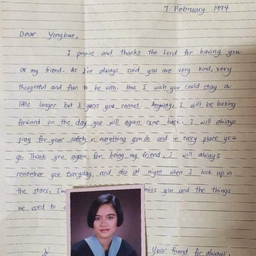 7 February 1994
Dear Yonghae,
I praise and thanks the Lord for having you
as my friend. As I've always said you are very kind, very
thoughtful and fun to be with. How I wish you could stay a
little longer but I guess you cannot. Anyway, I will be looking
forward on the day you will again come back. I will always
pray for your safety in everything you do and in every place you
go. Thank you again for being my friend. I will always
remember you everyday, and also at night when I look up in
the stars. I'm miss you and the things
we used to
Your friend for always,